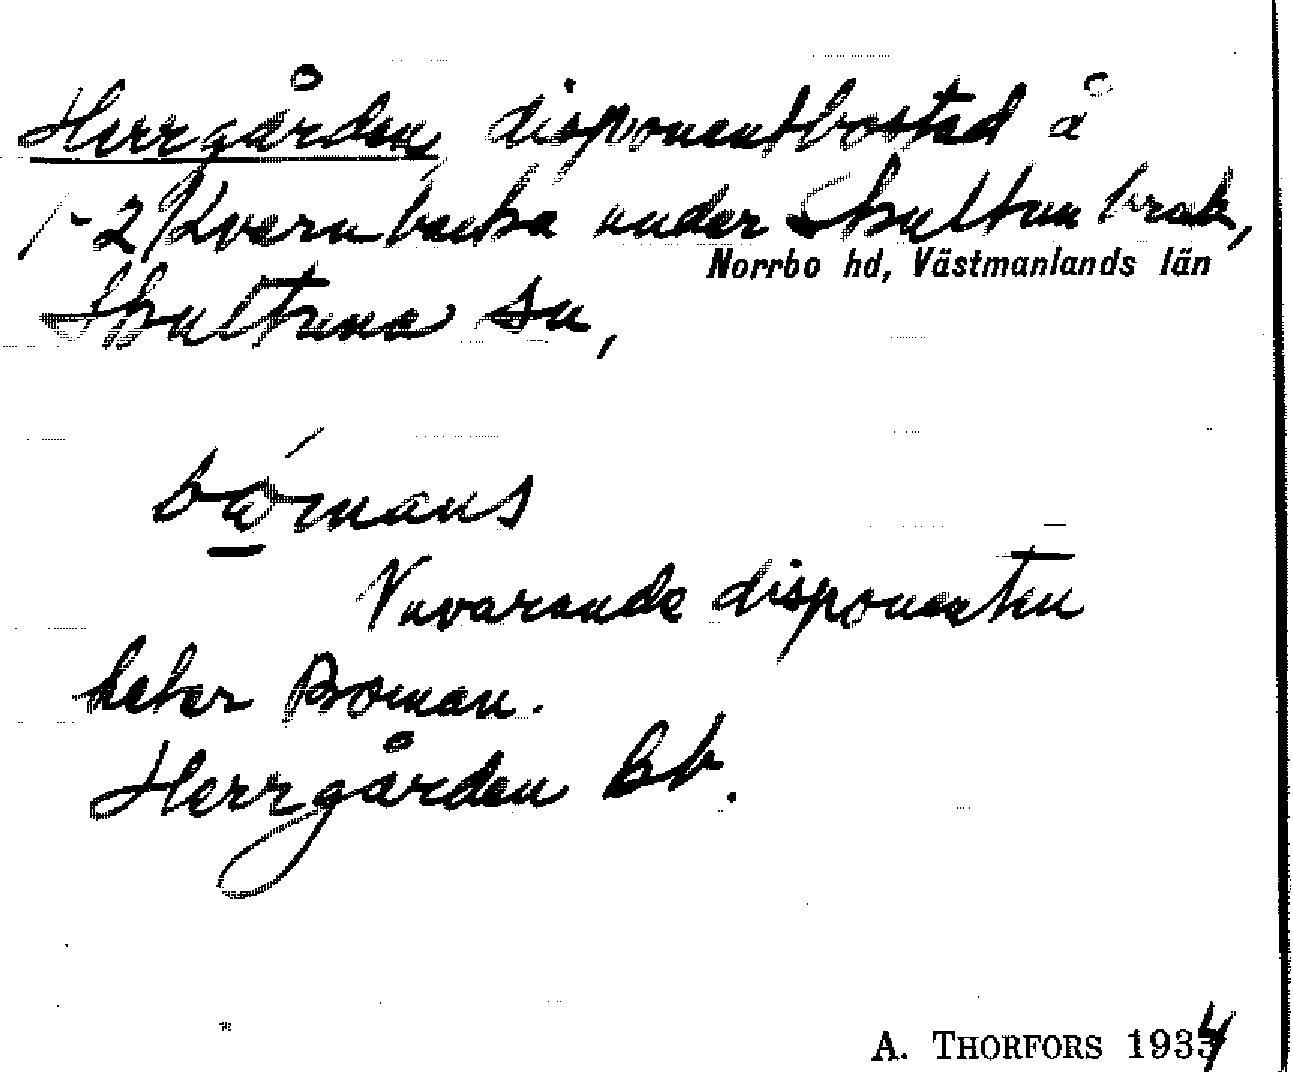 Herrgården, disponentbostad å
1-2 Kvarnbacka under Skultuna bruk,
Norrbo hd, Västmanlands län
Skultuna sn,
bómans
Nuvarande disponenten
heter Boman.
Herrgården Bb.
A. THORFORS 1934